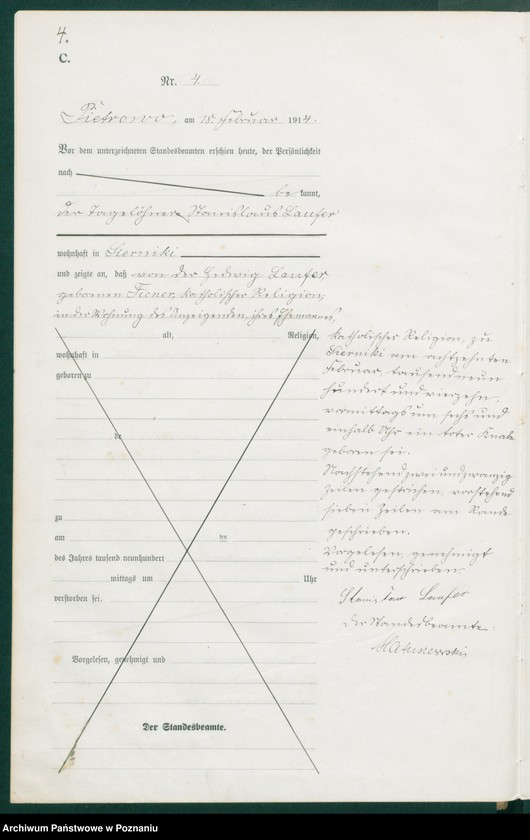 4.
C.
Nr. 4
Pietrowo, am 18. Februar 1914.
Vor dem unterzeichneten Standesbeamten erschien heute, der Persönlichkeit
nach
be kannt,
der Tagelöhner Stanislaus Laufer
wohnhaft in Sierniki
und zeigte an, daß von der Hedwig Laufer
geborenen Fiener, katholischer Religion,
in der Wohnung des Anzeigenden, ihres Ehemannes,
alt, Religion,
wohnhaft in
geboren zu
de
zu
am ten
des Jahres tausend neunhundert
mittags um Uhr
verstorben sei.
Vorgelesen, genehmigt und
Der Standesbeamte.
katholischer Religion, zu
Sierniki am achtzehnten
Februar, tausend neun
hundert und vierzehn,
vormittags um sechs und
einhalb Uhr ein toter Knabe
geboren sei.
Nachstehend zwei und zwanzig
Zeilen gestrichen, vorstehend
sieben Zeilen am Rande
geschrieben.
Vorgelesen, genehmigt
und unterschrieben
Stanisław Laufer
Der Standesbeamte.
Archiwum Państwowe w Poznaniu